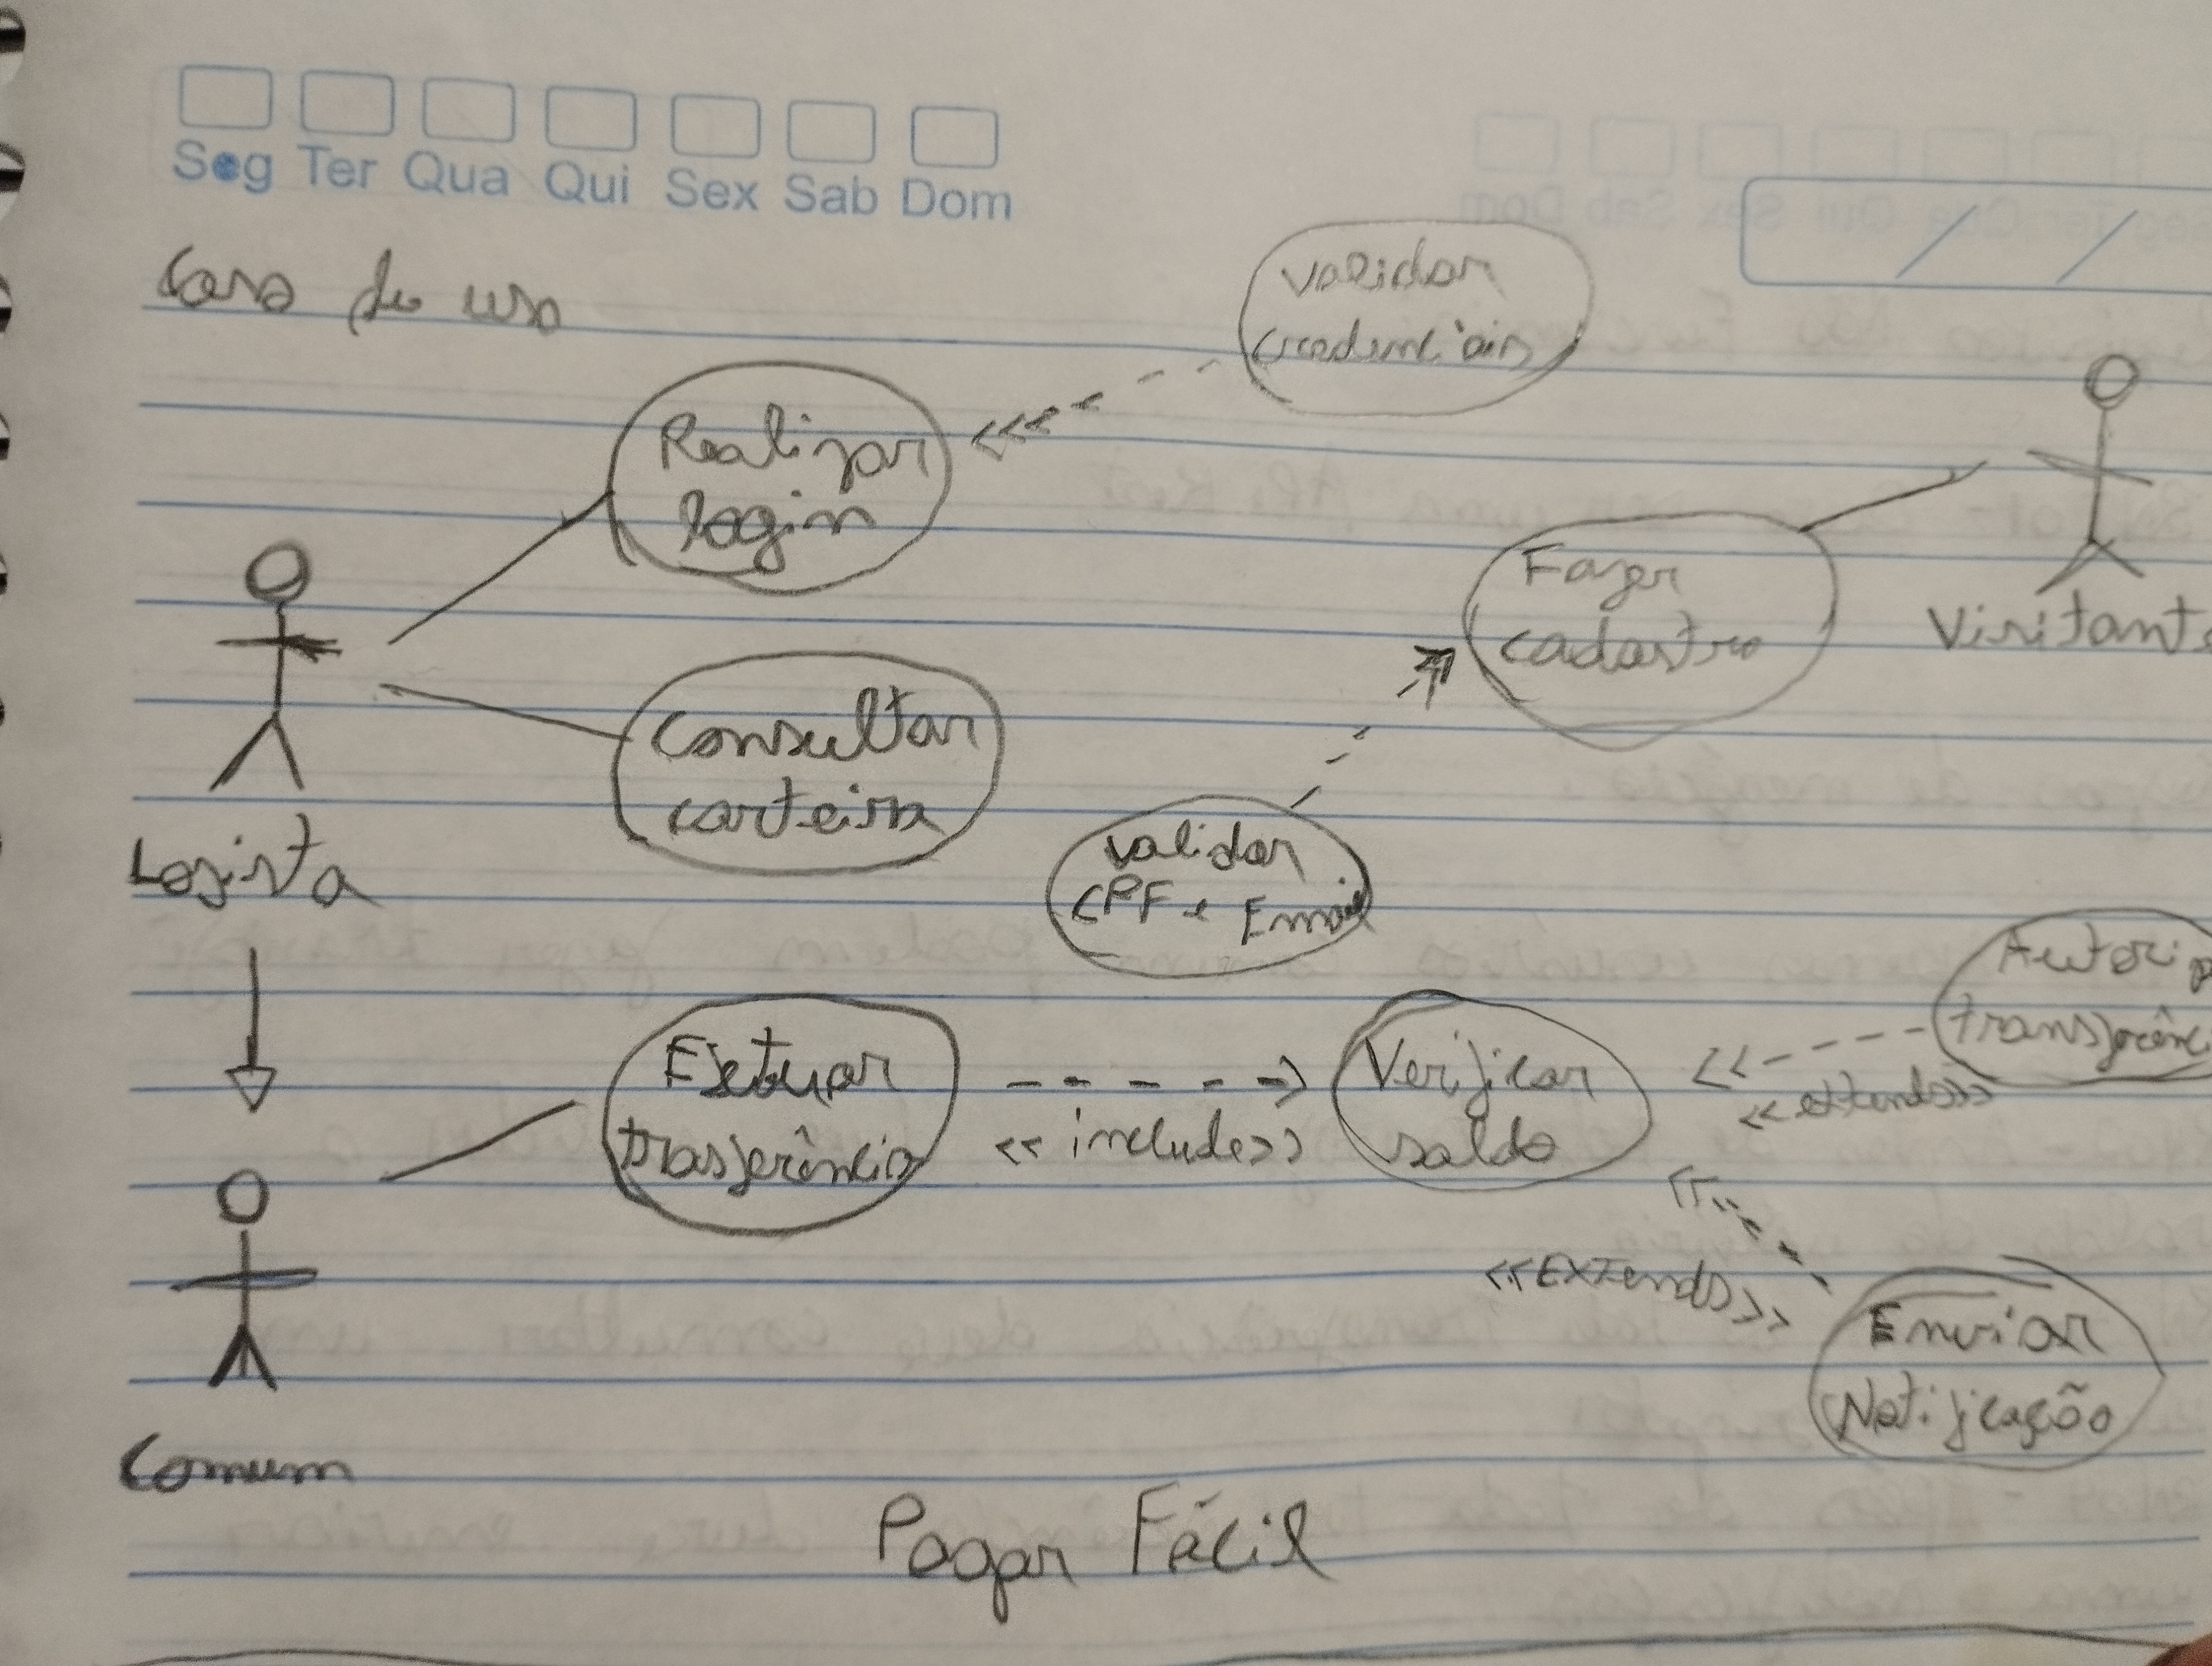 Seg Ter Qua Qui Sex Sab Dom
Caso de uso
validar
credenciais
Realizar
login
Fazer
cadastro
Visitante
Consultar
carteira
Logista
validar
CPF e Email
Efetuar
trasferência
<< include>>
Verificar
saldo
<< extends>>
<<Extends>>
Enviar
Notificação
Comum
Pagar Fácil